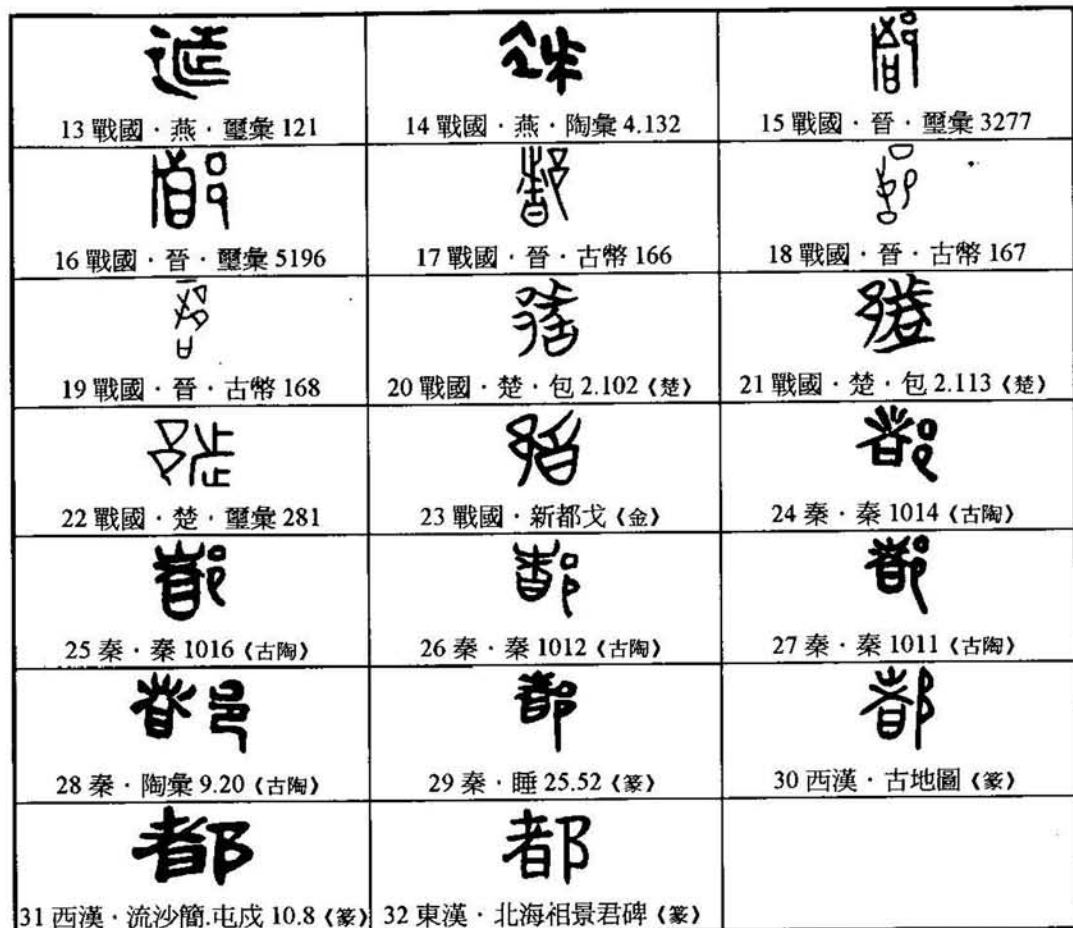 13 戰國·燕·璽彙 121
14 戰國·燕·陶彙 4.132
15 戰國·晉·璽彙 3277
16 戰國·晉·璽彙 5196
17 戰國·晉·古幣 166
18 戰國·晉·古幣 167
19 戰國·晉·古幣 168
20 戰國·楚·包 2.102《楚》
21 戰國·楚·包 2.113《楚》
22 戰國·楚·璽彙 281
23 戰國·新都戈《金》
24 秦·秦 1014《古陶》
25 秦·秦 1016《古陶》
26 秦·秦 1012《古陶》
27 秦·秦 1011《古陶》
28 秦·陶彙 9.20《古陶》
29 秦·睡 25.52《篆》
30 西漢·古地圖《篆》
都
31 西漢·流沙簡.屯戍 10.8《篆》
都
32 東漢·北海相景君碑《篆》